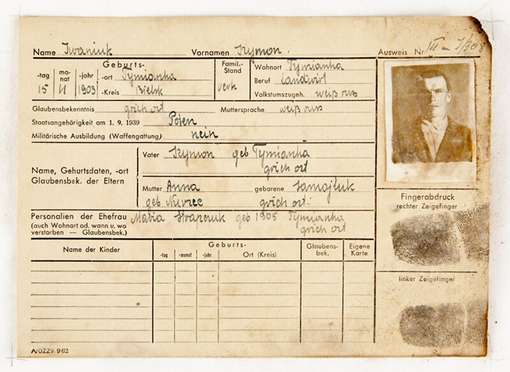 Name Iwaniuk Vornamen Szymon. Ausweis Nr III-1/308
Geburts-
-tag mo-nat -jahr -ort Tymianka
15 II 1903 -Kreis Bielsk
Famil.-Stand
verh
Wohnort Tymianka
Beruf Landwirt
Volkstumszugeh. weißrus
Glaubensbekenntnis griech ort Muttersprache weißrus
Staatsangehörigkeit am 1. 9. 1939 Polen
Militärische Ausbildung (Waffengattung) nein
Name, Geburtsdaten, -ort
Glaubensbek. der Eltern
Vater Szymon geb Tymianka
griech ort
Mutter Anna geborene Samojluk
geb. Nurzec griech ort.
Personalien der Ehefrau geb 1905 Tymianka
(auch Wohnort od. wann u. wo
verstorben — Glaubensbek.) griech ort
Name der Kinder
Geburts-
-tag -monat -jahr Ort (Kreis)
Glaubens-
bek.
Eigene
Karte
Fingerabdruck
rechter Zeigefinger
linker Zeigefinger
A/0229 9 62